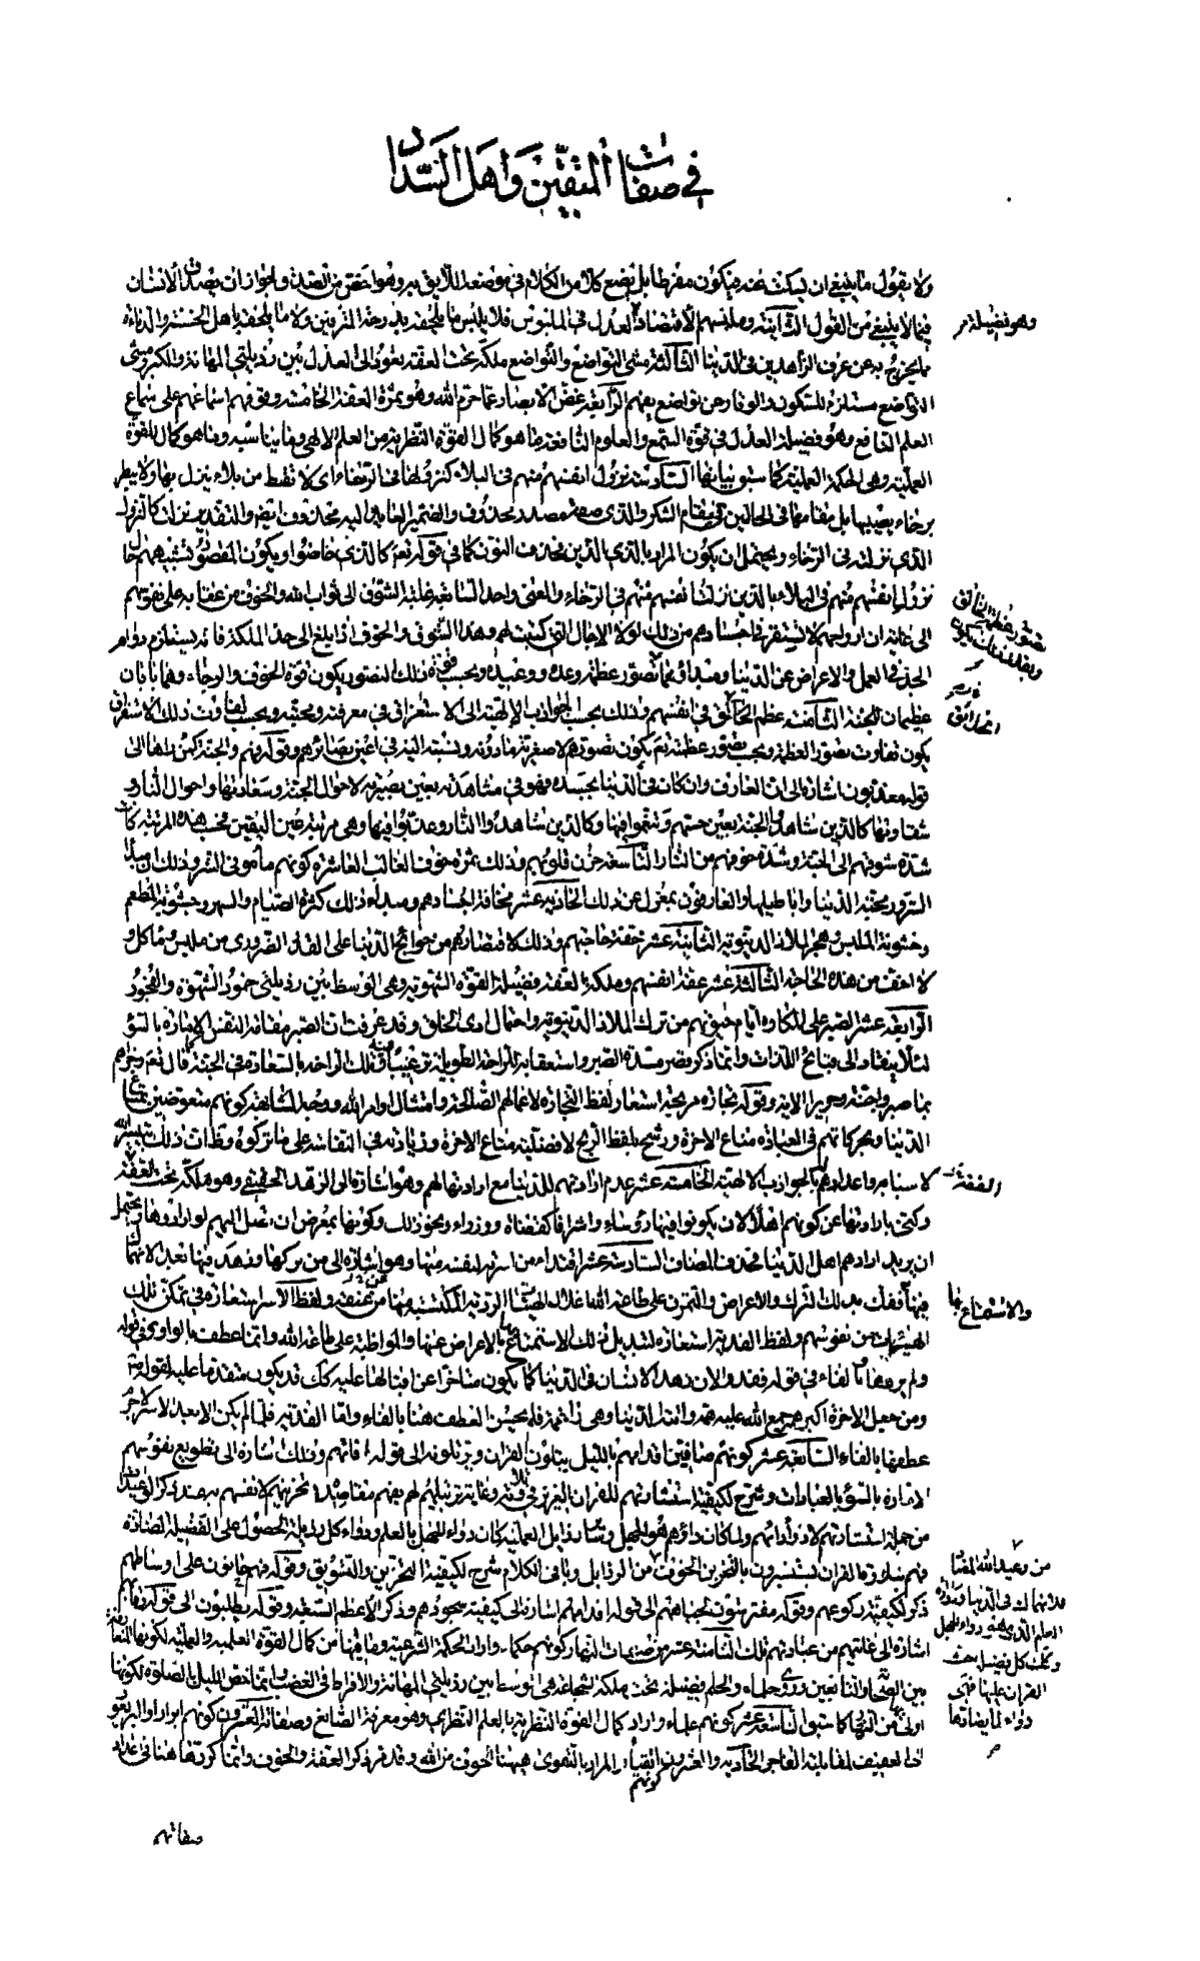 في صفات المتقين واهل السداد
ولا يقول ما ينبغي ان يسكت عنه فيكون مفرطا بل يضع كلا من الكلام في موضعه اللايق به وهو اخص من الصدق لجواز ان يصدق الانسان
فيما لا ينبغي من القول الثانية وملبسهم الاقتصاد العدل في الملبوس فلا يلبس ما يلحقه بدرجة المترفين ولا ما يلحقه باهل الخسة والدناءة
وهو فضيلة
مما يخرج به عن عرف الزاهدين في الدنيا الثالثة مشى التواضع والتواضع ملكة تحت العفة يعود الى العدل بين رذيلتي المهانة والكبر ومشى
التواضع مستلزم للسكون والوقار عن تواضع نفوسهم الرابعة غض الابصار عما حرم الله وهو ثمرة العفة الخامسة وقوفهم اسماعهم على سماع
العلم النافع وهو فضيلة العدل في قوة السمع والعلوم النافعة ما هو كمال القوة النظرية من العلم الالهي وما يناسبه وما هو كمال للقوة
العملية وهي الحكمة العملية كما سبق بيانها السادسة نزول انفسهم منهم في البلاء كنزولها في الرخاء اى لا تقنط من بلاء ينزل بها ولا يبطر
برخاء يصيبها بل مقامها في الحالين مقام الشكر والذى صفة مصدر محذوف والضمير العايد اليه محذوف ايضا والتقدير نزلت كالنزول
الذى نزلته في الرخاء ويحتمل ان يكون المراد بالذى الذين فحذف النون كما في قوله تعالى كالذى خاضوا ويكون المقصود تشبيههم حال
نزول انفسهم منهم في البلاء بالذين نزلت انفسهم منهم في الرخاء والمعنى واحد السابعة غلبة الشوق الى ثواب الله والخوف من عقابه على نفوسهم
الى غاية ان ارواحهم لا تستقر في اجسادهم من ذلك لولا الاجال التي كتبت لهم وهذا الشوق والخوف اذا بلغ الى حد الملكة فانه يستلزم دوام
الجد في العمل والاعراض عن الدنيا ومبدأهما تصور عظمة وعده ووعيده وبحسب قوة ذلك التصور يكون قوة الخوف والرجاء وهما بابان
عظيمان للجنة الثامنة عظم الخالق في انفسهم وذلك بحسب الجواذب الالهية الى الاستغراق في معرفته ومحبته وبحسب تفاوت ذلك الاستغراق
يكون تفاوت تصور العظمة وبحسب تصور عظمته تعالى يكون تصورهم لاصغرية ما دونه ونسبته اليه في اعين بصائرهم وقوله فهم والجنة كمن رآها الى
قوله معذبون اشارة الى ان العارف وان كان في الدنيا بجسده فهو في مشاهدته بعين بصيرته لاحوال الجنة وسعادتها واحوال النار و
شقاوتها كالذين شاهدوا الجنة بعين حسهم وتنعموا فيها وكالذين شاهدوا النار وعذبوا فيها وهي مرتبة عين اليقين فحسب هذه المرتبة كان
شدة شوقهم الى الجنة وشدة خوفهم من النار التاسعة حزن قلوبهم وذلك ثمرة خوف الغالب العاشرة كونهم مأموني الشر وذلك ان مبدأ
الشرور محبة الدنيا واباطيلها والعارفون بمعزل عن ذلك الحادية عشر نحافة اجسادهم ومبدء ذلك كثرة الصيام والسهر وجشوبة المطعم
وخشونة الملبس وهجر الملاذ الدنيوية الثانية عشر خفة حاجتهم وذلك لاقتصارهم من حوائج الدنيا على القدر الضروري من ملبس وماكل و
لا اخف من هذه الحاجة الثالثة عشر عفة انفسهم وملكة العفة فضيلة القوة الشهوية وهي الوسط بين رذيلتي خمود الشهوة والفجور
الرابعة عشر الصبر على المكاره ايام حيوتهم من ترك الملاذ الدنيوية واحتمال اذى الخلق وقد عرفت ان الصبر مقاومة النفس الامارة بالسوء
لئلا ينقاد الى قبائح اللذات وانما ذكر قصر مدة الصبر واستعقابه للراحة الطويلة ترغيبا فيه وتلك الراحة بالسعادة في الجنة كما قال تعالى وجزاهم
بما صبروا جنة وحريرا الاية وقوله تجارة مربحة استعار لفظ التجارة لاعمالهم الصالحة وامتثال اوامر الله ووجه المشابهة كونهم متعوضين بمتاع
الدنيا وبحركاتهم في العبادة متاع الاخرة ورشح بلفظ الربح لافضلية متاع الاخرة وزيادته في النفاسة على ما تركوه وظاهر ان ذلك بتيسير الله
لاسبابه واعدادهم بالجواذب الالهية الخامسة عشر عدم ارادتهم للدنيا مع ارادتها لهم وهو اشارة الى الزهد الحقيقي وهو ملكة تحت العفة
وكنى بارادتها عن كونهم اهلا لان يكونوا فيها رؤساء واشرافا كقضاة ووزراء ونحو ذلك وكونها بمعرض ان تصل اليهم لو ارادوها ويحتمل
ان يريد ارادهم اهل الدنيا فحذف المضاف السادسة عشر افتداء من اسرته لنفسه منها وهو اشارة الى من تركها وزهد فيها بعد الانهماك
فيها ففك بذلك الترك والاعراض والتمرن على طاعة الله اغلال الهيئات الردية المكتسبة منها من عنقه ولفظ الاسر استعارة في تمكن تلك
والاستمتاع بها
الهيئات من نفوسهم ولفظ الفدية استعارة لتبديل ذلك الاستمتاع بالاعراض عنها والمواظبة على طاعة الله وانما عطف بالواو في قوله
ولم يريدوها وبالفاء في قوله ففدوا لان زهد الانسان في الدنيا كما يكون متاخرا عن اقبالها عليه كذلك قد يكون متقدما عليه لقوله ص
ومن جعل الاخرة اكبر همه جمع الله عليه همه واتته الدنيا وهي راغمة فلم يحسن العطف هنا بالفاء واما الفدية فلما لم يكن الا بعد الاسر لا جرم
عطفها بالفاء السابعة عشر كونهم صافين اقدامهم بالليل يتلون القران ويرتلونه الى قوله اذانهم وذلك اشارة الى تطويع نفوسهم
الامارة بالسوء بالعبادات وشرح لكيفية استثارتهم للقران العزيز في تلاوته وغاية ترتيلهم له بفهم مقاصده وتحزينهم لانفسهم به عند ذكر الوعيد
من جملة استثارتهم لادواء دائهم ولما كان داؤهم هو الجهل وسائر رذايل العملية كان دواء الجهل بالعلم ودواء كل رذيلة الحصول على الفضيلة المضادة
فهم بتلاوة القران يستثيرون بالتحزين الخوف من الرذايل وباقي الكلام شرح لكيفية التحزين والتشويق وقوله فهم حانون على اوساطهم
ذكر لكيفية ركوعهم وقوله مفترشون لجباههم الى قوله اقدامهم اشارة الى كيفية سجودهم وذكر الاعظم السبعة وقوله يطلبون الى قوله رقابهم
اشارة الى غايتهم من عبادتهم تلك الثامنة عشر من صفاتهم بالنهار كونهم حكماء واراد الحكمة الشرعية وما فيها من كمال القوة العلمية والعملية لكونها المتعارفة
بين الصحابة والتابعين وروي حلماء والحلم فضيلة تحت ملكة الشجاعة هي الوسط بين رذيلتي المهانة والافراط في الغضب وانما خص الليل بالصلاة لكونها
اولى من النهار كما سبق التاسعة عشر كونهم علماء واراد كمال القوة النظرية بالعلم النظري وهو معرفة الصانع وصفاته العشرون كونهم ابرارا والبر يعود
الى العفيف لمقابلته الفاجر الحادية والعشرون كونهم اتقياء والمراد بالتقوى هيهنا الخوف من الله وقد مر ذكر العفة والخوف وانما كررهما هنا في عداد
صفاتهم